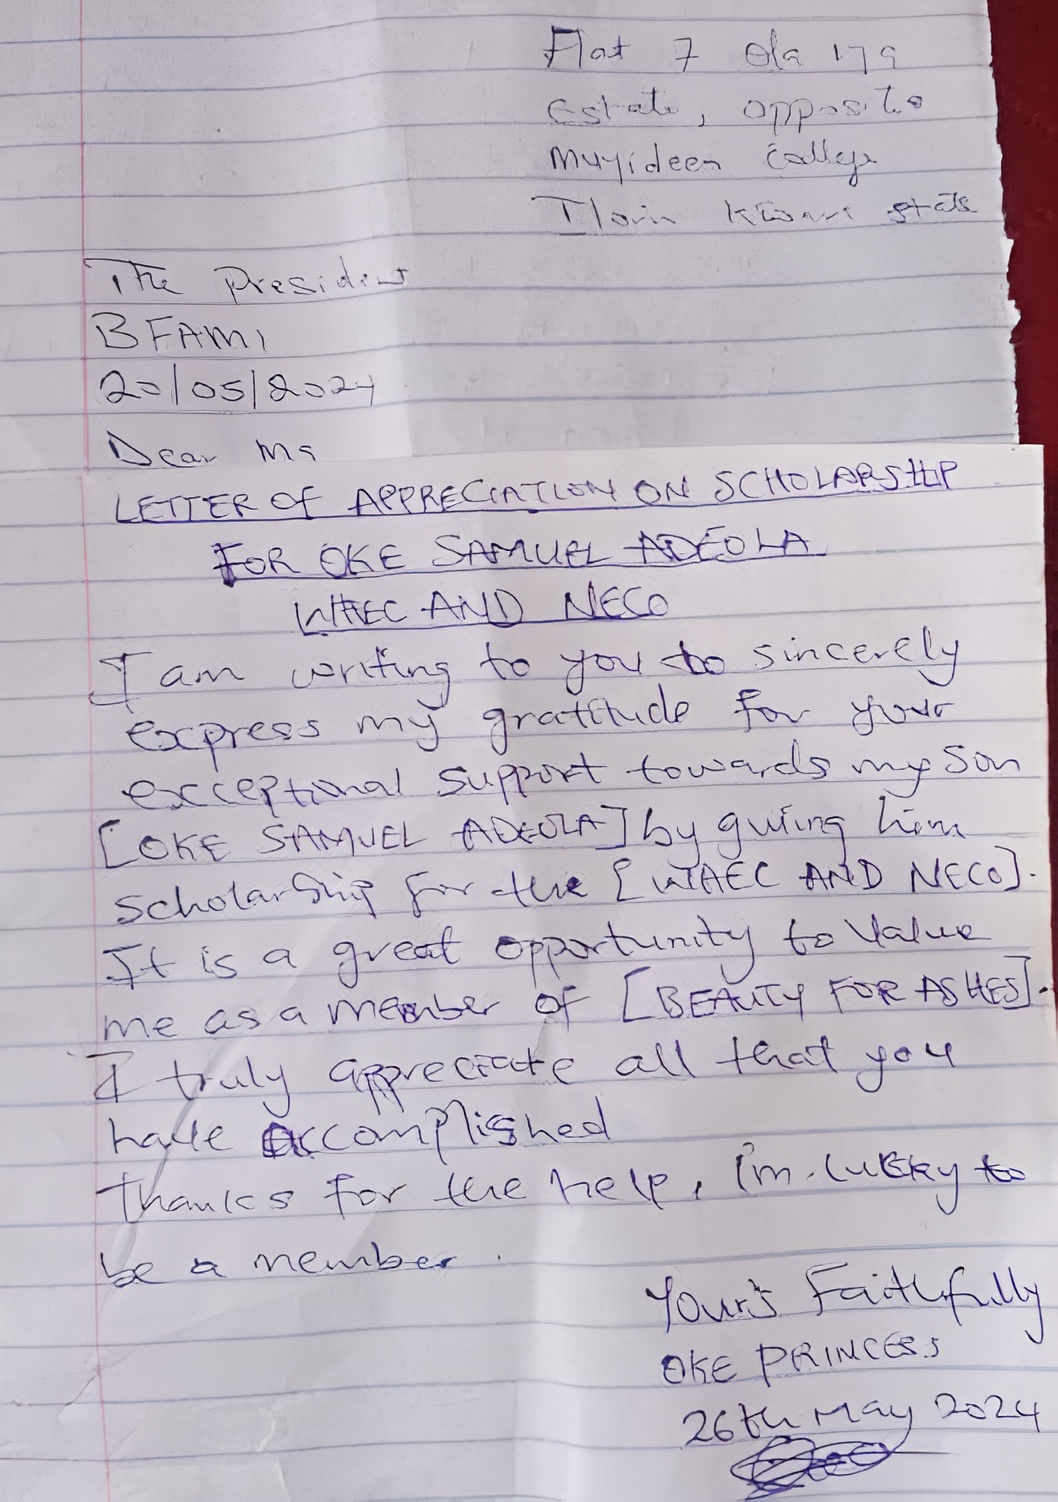 Flat 7 Ola 179
Estate, opposite
Muyideen College
Ilorin Kwara state
The President
BFAMI
20/05/2024
Dear Ma
LETTER OF APPRECIATION ON SCHOLARSHIP
FOR OKE SAMUEL ADEOLA
WAEC AND NECO
I am writing to you to sincerely
express my gratitude for your
excceptional support towards my son
[OKE SAMUEL ADEOLA] by guiing him
scholarship for the [WAEC AND NECO].
It is a great opportunity to value
me as a member of [BEAUTY FOR ASHES].
I truly appreciate all that you
have accomplished
Thanks for the help, i'm lucky to
be a member.
Your's Faithfully
OKE PRINCESS
26th May 2024